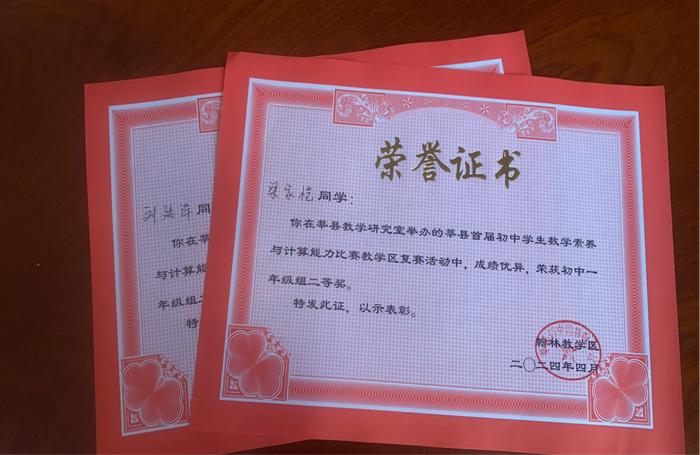 荣誉证书
梁家恺同学：
你在莘县教学研究室举办的莘县首届初中学生数学素养
与计算能力比赛教学区复赛活动中，成绩优异，荣获初中一
年级组二等奖。
特发此证，以示表彰。
翰林教学区
二〇二四年四月
同
你在莘
与计算能
年级组二
特